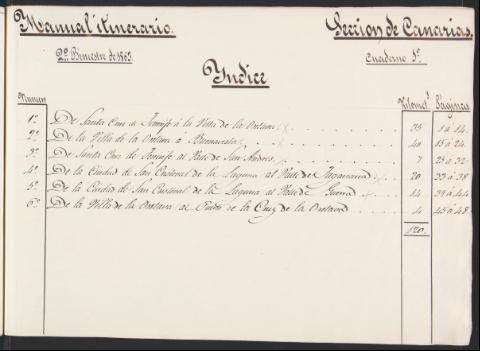 Manual itinerario. Seccion de Canarias.
2º Bimestre de 1863. Cuaderno 5º.
Yndice
Numeros Kilomets Páginas
1º De Santa Cruz de Tenerife á la Villa de la Orotava 35 1 á 14.
2º De la Villa de la Orotava á Buenavista 40 15 á 24.
3º De Santa Cruz de Tenerife al Valle de San Andres 7 25 á 32.
4º De la Ciudad de San Cristobal de la Laguna al Valle de 20 33 á 38
5º De la Ciudad de San Cristobal de la Laguna al Valle de Guerra 14 39 á 44.
6º De la Villa de la Orotava al Puerto de la Cruz de la Orotava 4 45 á 48.
120.